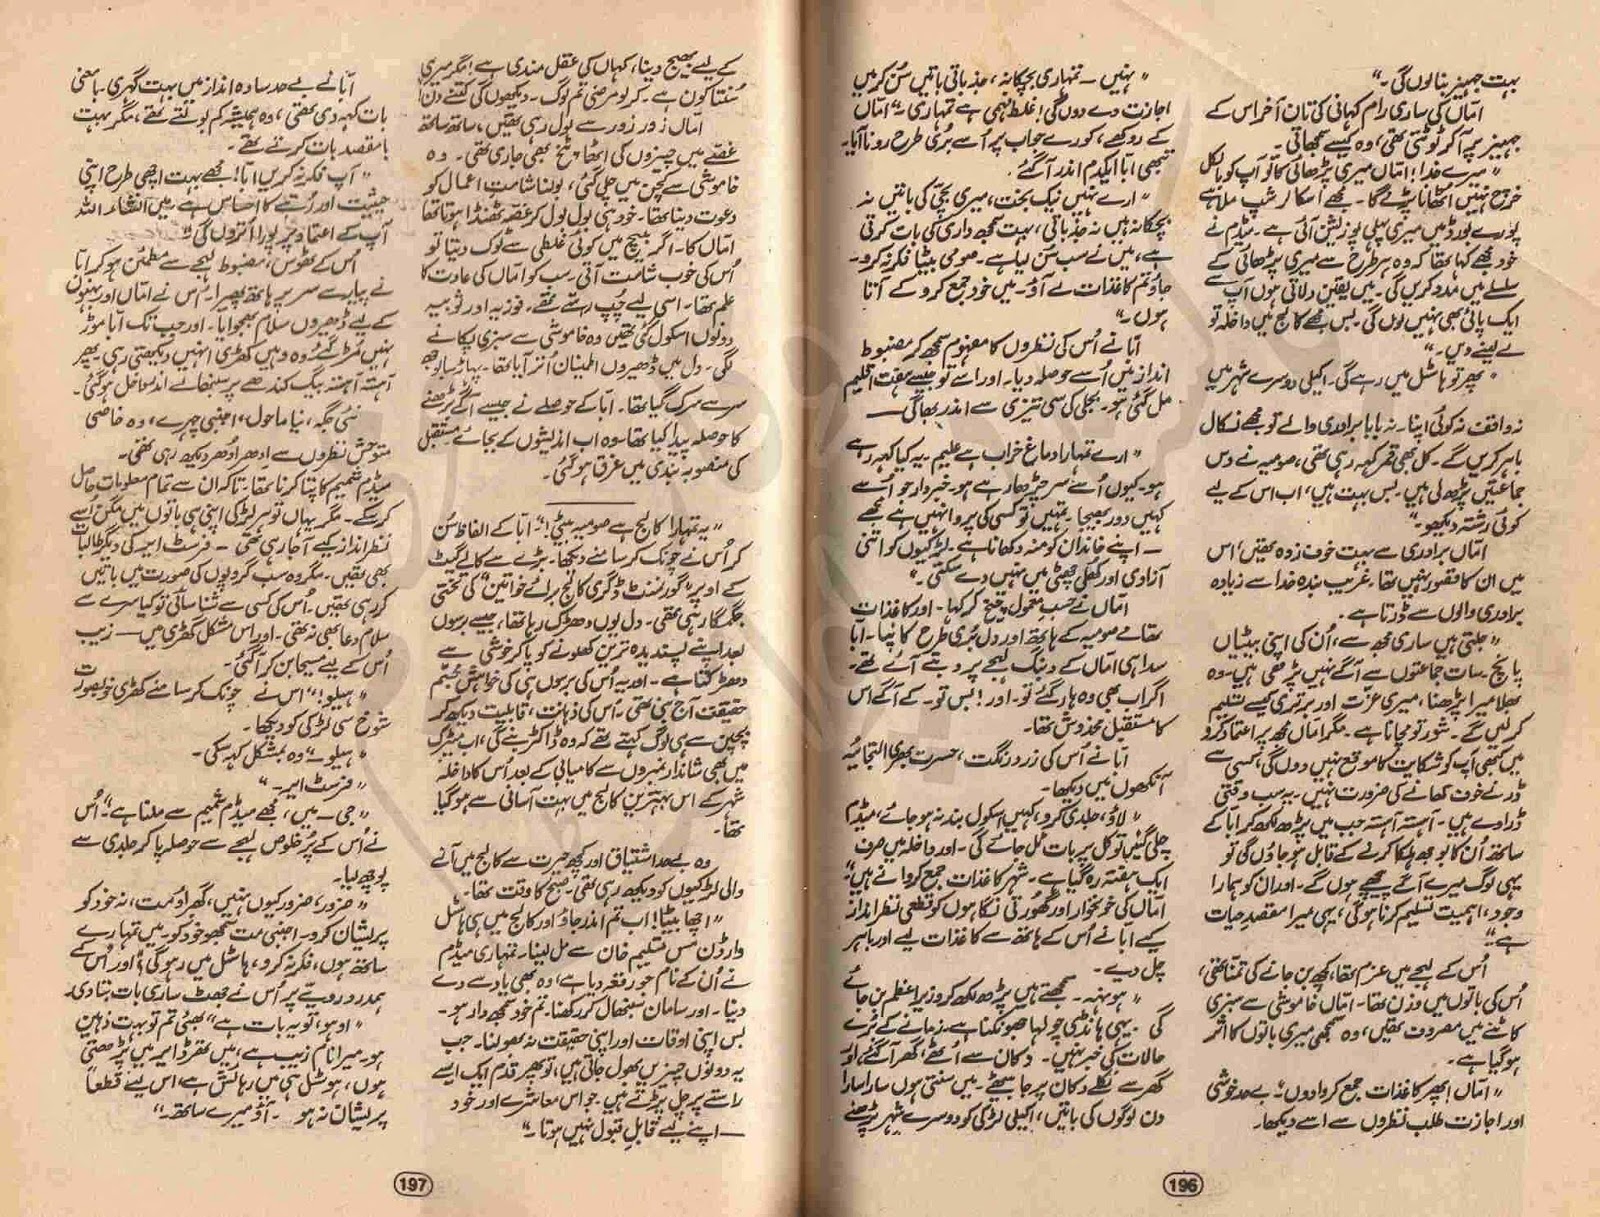 بہت جہیز بنا لوں گی۔“
اماں کی ساری رام کہانی کی تان آخر اس کے
جہیز پہ آ کر ٹوٹتی تھی، وہ کیسے سمجھاتی۔
”میرے خدا! اماں میری پڑھائی کا تو آپ کو بالکل
خرچ نہیں اٹھانا پڑے گا۔ مجھے اسکالر شپ ملنا ہے
پورے بورڈ میں میری پہلی پوزیشن آئی ہے۔ میڈم نے
خود مجھے کہا تھا کہ وہ ہر طرح سے میری پڑھائی کے
سلسلے میں مدد کریں گی۔ میں یقین دلاتی ہوں آپ سے
ایک پائی بھی نہیں لوں گی۔ بس مجھے کالج میں داخلہ تو
لے لینے دیں۔“
”پھر تو ہاسٹل میں رہے گی۔ اکیلی دوسرے شہر میں
نہ واقف نہ کوئی اپنا۔ نہ بابا برادری والے تو مجھے نکال
باہر کریں گے۔ کل بھی قمر کہہ رہی تھی، صومیہ نے دس
جماعتیں پڑھ لی ہیں۔ بس بہت ہیں، اب اس کے لیے
کوئی رشتہ دیکھو۔“
اماں برادری سے بہت خوف زدہ تھیں، اس
میں ان کا قصور نہیں تھا، غریب بندہ خدا سے زیادہ
برادری والوں سے ڈرتا ہے۔
”جلتی ہیں ساری مجھ سے، اُن کی اپنی بیٹیاں
پانچ۔ سات جماعتوں سے آگے نہیں پڑھی ہیں۔ وہ
بھلا میرا پڑھنا، میری عزت اور برتری کیسے تسلیم
کر لیں گے۔ شور تو مچانا ہے۔ مگر اماں مجھ پر اعتماد کرو
میں کبھی آپ کو شکایت کا موقع نہیں دوں گی، کسی سے
ڈرنے خوف کھانے کی ضرورت نہیں۔ یہ سب وقتی
ڈراوے ہیں۔ آہستہ آہستہ جب میں پڑھ لکھ کر ابا کے
ساتھ اُن کا بوجھ ہلکا کرنے کے قابل ہو جاؤں گی تو
یہی لوگ میرے آگے پیچھے ہوں گے۔ اور ان کو ہمارا
وجود، اہمیت تسلیم کرنا ہو گی، یہی میرا مقصد حیات
ہے۔“
اُس کے لہجے میں عزم تھا، کچھ بن جانے کی تمنا تھی،
اُس کی باتوں میں وزن تھا۔ اماں خاموشی سے سبزی
کاٹنے میں مصروف تھیں، وہ سمجھی میری باتوں کا اثر
ہو گیا ہے۔
”اماں! پھر کاغذات جمع کروا دوں“۔ بے حد خوشی
اور اجازت طلب نظروں سے اسے دیکھا۔
”نہیں۔ تمہاری بچکانہ، جذباتی باتیں سُن کر میں
اجازت دے دوں گی! غلط فہمی ہے تمہاری۔“ اماں
کے روکھے، کورے جواب پر اُسے بُری طرح رونا آیا۔
تبھی ابا ایکدم اندر آ گئے۔
”ارے نہیں نیک بخت، میری بچی کی باتیں نہ
بچکانہ ہیں نہ جذباتی، بہت سمجھ داری کی بات کرتی
ہے، میں نے سب سُن لیا ہے۔ صومی بیٹا فکر نہ کرو۔
جاؤ تم کاغذات لے آؤ۔ میں خود جمع کرو کے آتا
ہوں۔“
ابا نے اُس کی نظروں کا مفہوم سمجھ کر مضبوط
انداز میں اُسے حوصلہ دیا۔ اور اسے تو جیسے ہفت اقلیم
مل گئی ہو۔ بجلی کی سی تیزی سے اندر بھاگی—
”ارے تمہارا دماغ خراب ہے علیم۔ یہ کیا کہہ رہے
ہو۔ کیوں اُسے سر چڑھا رہے ہو۔ خبردار جو اُسے
کہیں دور بھیجا۔ تمہیں تو کسی کی پروا نہیں ہے مجھے
— اپنے خاندان کو منہ دکھانا ہے۔ لڑکیوں کو اتنی
آزادی اور کھلی چھٹی میں نہیں دے سکتی۔“
اماں نے حسب معمول چیخ کر کہا۔ اور کاغذات
تھامے صومیہ کے ہاتھ اور دل بُری طرح کانپا۔ ابا
سدا ہی اماں کے دبنگ لہجے پر دبتے آئے تھے۔
اگر اب بھی وہ ہار گئے تو۔ اور! بس تو۔ کے آگے اس
کا مستقبل مخدوش تھا۔
ابا نے اُس کی زرد رنگت، حسرت بھری التجائیہ
آنکھوں میں دیکھا۔
”لاؤ، جلدی کرو، کہیں اسکول بند نہ ہو جائے، میڈم
چلی گئیں تو کل پر بات ٹل جائے گی۔ اور داخلہ میں صرف
ایک ہفتہ رہ گیا ہے۔ شہر کاغذات جمع کروانے ہیں“
اماں کی خونخوار اور گھورتی نگاہوں کو قطعی نظر انداز
کیے ابا نے اُس کے ہاتھ سے کاغذات لیے اور باہر
چل دیے۔
”ہونہہ۔ سمجھتے ہیں پڑھ لکھ کر وزیر اعظم بن جائے
گی۔ یہی ہانڈی چولہا جھونکنا ہے۔ زمانے کے بُرے
حالات کی خبر نہیں۔ دکان سے اُٹھے، گھر آ گئے، اور
گھر سے نکلے دکان پر جا بیٹھے۔ میں سنتی ہوں سارا سارا
دن لوگوں کی باتیں، اکیلی لڑکی کو دوسرے شہر پڑھنے
196
کے لیے بھیج دینا، کہاں کی عقل مندی ہے! مگر میری
سُنتا کون ہے۔ کر لو مرضی تم لوگ۔ دیکھوں گی کتنے دن!
اماں زور زور سے بول رہی تھیں، ساتھ ساتھ
غصے میں چیزوں کی اٹھا پٹخ بھی جاری تھی۔ وہ
خاموشی سے کچن میں چلی گئی، بولنا شامت اعمال کو
دعوت دینا تھا۔ خود ہی بول بول کر غصہ ٹھنڈا ہوتا تھا
اماں کا۔ اگر بیچ میں کوئی غلطی سے ٹوک دیتا تو
اُس کی خوب شامت آتی۔ سب کو اماں کی عادت کا
علم تھا۔ اسی لیے چُپ رہتے تھے۔ فوزیہ اور ثوبیہ
دونوں اسکول گئی تھیں وہ خاموشی سے سبزی پکانے
لگی۔ دل میں ڈھیروں اطمینان اُتر آیا تھا۔ پہاڑ سا بوجھ
سر سے سرک گیا تھا۔ ابا کے حوصلے نے جیسے آگے بڑھنے
کا حوصلہ پیدا کیا تھا۔ وہ اب اندیشوں کے بجائے مستقبل
کی منصوبہ بندی میں غرق ہو گئی۔
”یہ تمہارا کالج ہے صومیہ بیٹی!“ ابا کے الفاظ سُن
کر اُس نے چونک کر سامنے دیکھا۔ بڑے سے کالے گیٹ
کے اوپر ”گورنمنٹ ڈگری کالج برائے خواتین“ کی تختی
جگمگا رہی تھی۔ دل یوں دھڑک رہا تھا، جیسے برسوں
بعد اپنے پسندیدہ ترین کھلونے کو پا کر خوشی سے
دھڑکتا ہے۔ اور یہ اُس کی برسوں ہی کی خواہش مجسّم
حقیقت آج بنی تھی۔ اُس کی ذہانت، قابلیت دیکھ کر
بچپن سے ہی لوگ کہتے تھے کہ وہ ڈاکٹر بنے گی، اب میٹرک
میں بھی شاندار نمبروں سے کامیابی کے بعد اُس کا داخلہ
شہر کے اس بہترین کالج میں بہت آسانی سے ہو گیا
تھا۔
وہ بے حد اشتیاق اور کچھ حیرت سے کالج میں آنے
والی لڑکیوں کو دیکھ رہی تھی۔ صبح کا وقت تھا۔
”اچھا بیٹا! اب تم اندر جاؤ اور کالج میں ہی ہاسٹل
وارڈن مس تسلیم خان سے مل لینا۔ تمہاری میڈم
نے اُن کے نام جو رقعہ دیا ہے، وہ بھی یاد سے دے
دینا۔ اور سامان سنبھال کر رکھنا۔ تم خود سمجھ دار ہو۔
بس اپنی اوقات اور اپنی حقیقت نہ بھولنا۔ جب
یہ دونوں چیزیں بھول جاتی ہیں، تو پھر قدم ایک ایسے
راستے پر چل پڑتے ہیں۔ جو اس معاشرے اور خود
— اپنے لیے قابل قبول نہیں ہوتا۔“
ابا نے بے حد سادہ انداز میں بہت گہری۔ با معنی
بات کہہ دی تھی، وہ ہمیشہ کم بولتے تھے، مگر بہت
با مقصد بات کرتے تھے۔
”آپ فکر نہ کریں ابا! مجھے بہت اچھی طرح اپنی
حیثیت اور رُتبے کا احساس ہے، میں انشاء اللہ
آپ کے اعتماد پر پورا اُتروں گی“
اُس کے ٹھوس، مضبوط لہجے سے مطمئن ہو کر ابا
نے پیار سے سر پر ہاتھ پھیرا۔ اُس نے اماں اور بہنوں
کے لیے ڈھیروں سلام بھجوایا۔ اور جب تک ابا موڑ
نہیں مُڑ گئے وہ وہیں کھڑی انہیں دیکھتی رہی پھر
آہستہ آہستہ بیگ کندھے پر سنبھالے اندر داخل ہو گئی۔
نئی جگہ، نیا ماحول، اجنبی چہرے، وہ خاصی
متوحش نظروں سے اِدھر اُدھر دیکھ رہی تھی۔
میڈم شمیم کا پتا کرنا تھا۔ تاکہ ان سے تمام معلومات حاصل
کر سکے۔ مگر یہاں تو ہر لڑکی اپنی ہی باتوں میں مگن اُسے
نظر انداز کیے آ جا رہی تھی۔ فرسٹ ایئر کی دیگر طالبات
بھی تھیں۔ مگر وہ سب گروپوں کی صورت میں باتیں
کر رہی تھیں۔ اُس کی کسی سے شناسائی تو کیا سرے سے
سلام دعا بھی نہ تھی۔ اور اس مشکل گھڑی میں— زیب
اُس کے لیے مسیحا بن کر آ گئی۔
”ہیلو!“ اس نے چونک کر سامنے کھڑی خوبصورت
شوخ سی لڑکی کو دیکھا۔
”ہیلو“ وہ بمشکل کہہ سکی۔
”فرسٹ ایئر۔“
”جی۔ میں، مجھے میڈم شمیم سے ملنا ہے“۔ اُس
نے اُس کے پُر خلوص لہجے سے حوصلہ پا کر جلدی سے
پوچھ لیا۔
”ضرور، ضرور کیوں نہیں، گھبراؤ مت، نہ خود کو
پریشان کرو۔ اجنبی مت سمجھو خود کو۔ میں تمہارے
ساتھ ہوں، فکر نہ کرو، ہاسٹل میں رہو گی؟“ اور اُس کے
ہمدرد رویے پر اُس نے جھٹ ساری بات بتا دی۔
”اوہو، تو یہ بات ہے“ بھئی تم تو بہت ذہین
ہو۔ میرا نام زیب ہے، میں تھرڈ ایئر میں پڑھتی
ہوں، ہوسٹل ہی میں رہائش ہے، اس لیے قطعاً
پریشان نہ ہو۔ آؤ میرے ساتھ۔“
197